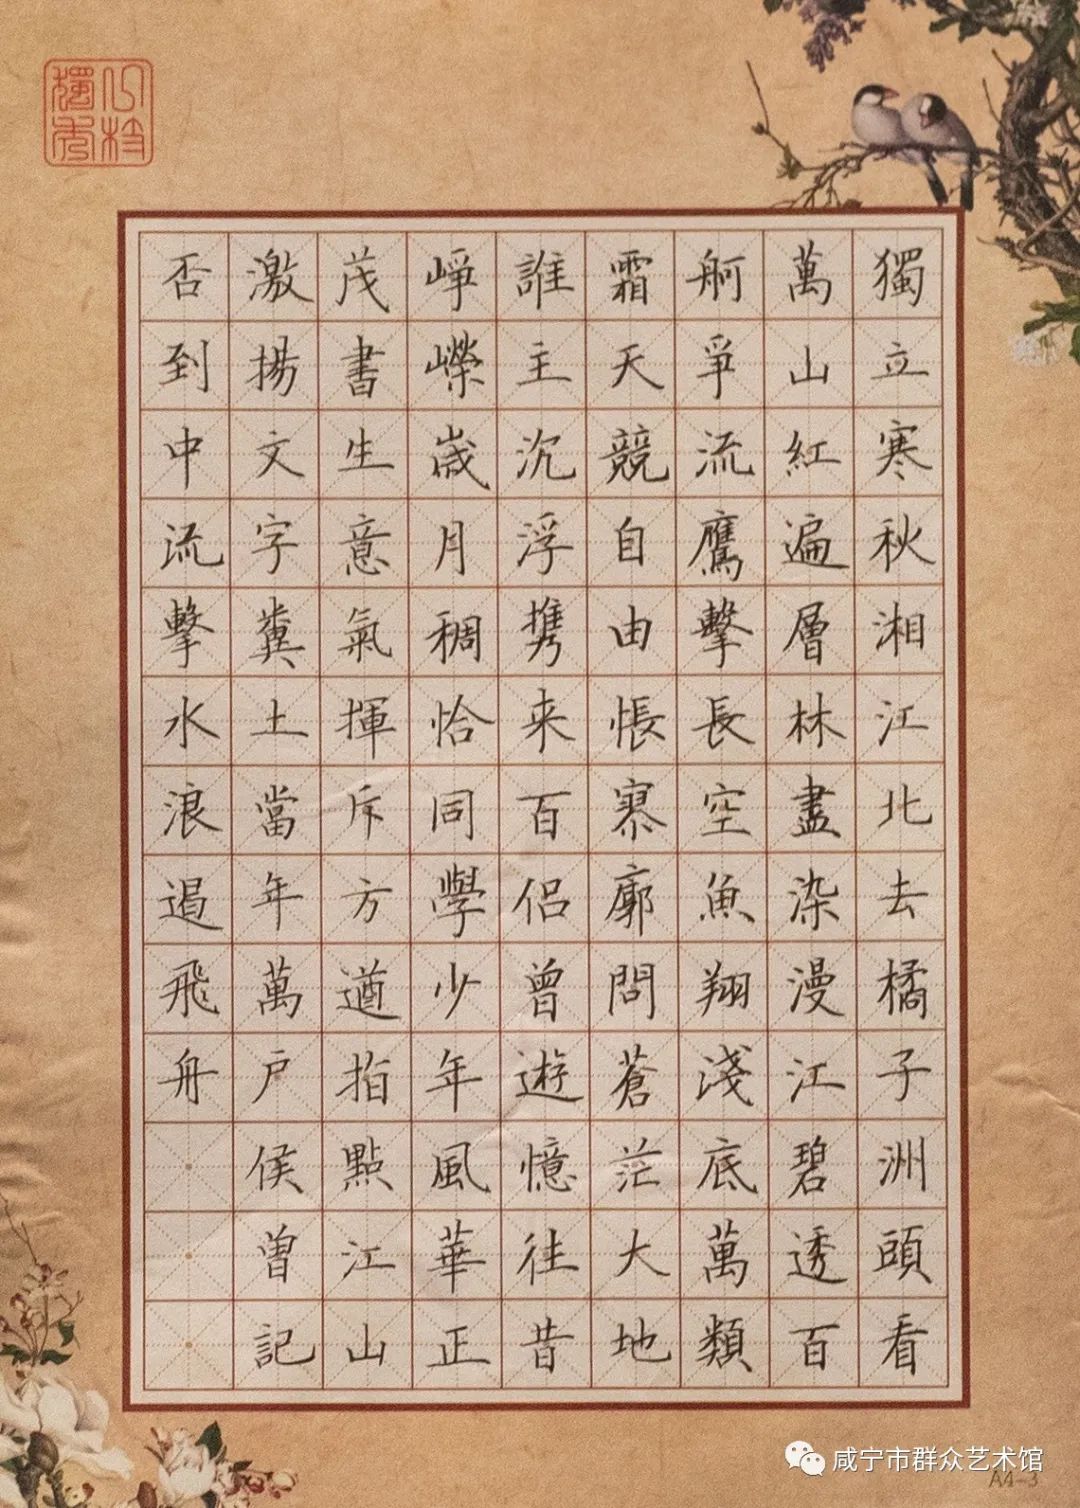 獨立寒秋湘江北去橘子洲頭看
萬山紅遍層林盡染漫江碧透百
舸爭流鷹擊長空魚翔淺底萬類
霜天競自由悵寥廓問蒼茫大地
誰主沉浮携来百侶曾遊憶往昔
崢嶸歲月稠恰同學少年風華正
茂書生意氣揮斥方遒指點江山
激揚文字糞土當年萬户侯曾記
否到中流擊水浪遏飛舟
咸宁市群众艺术馆
A4-3